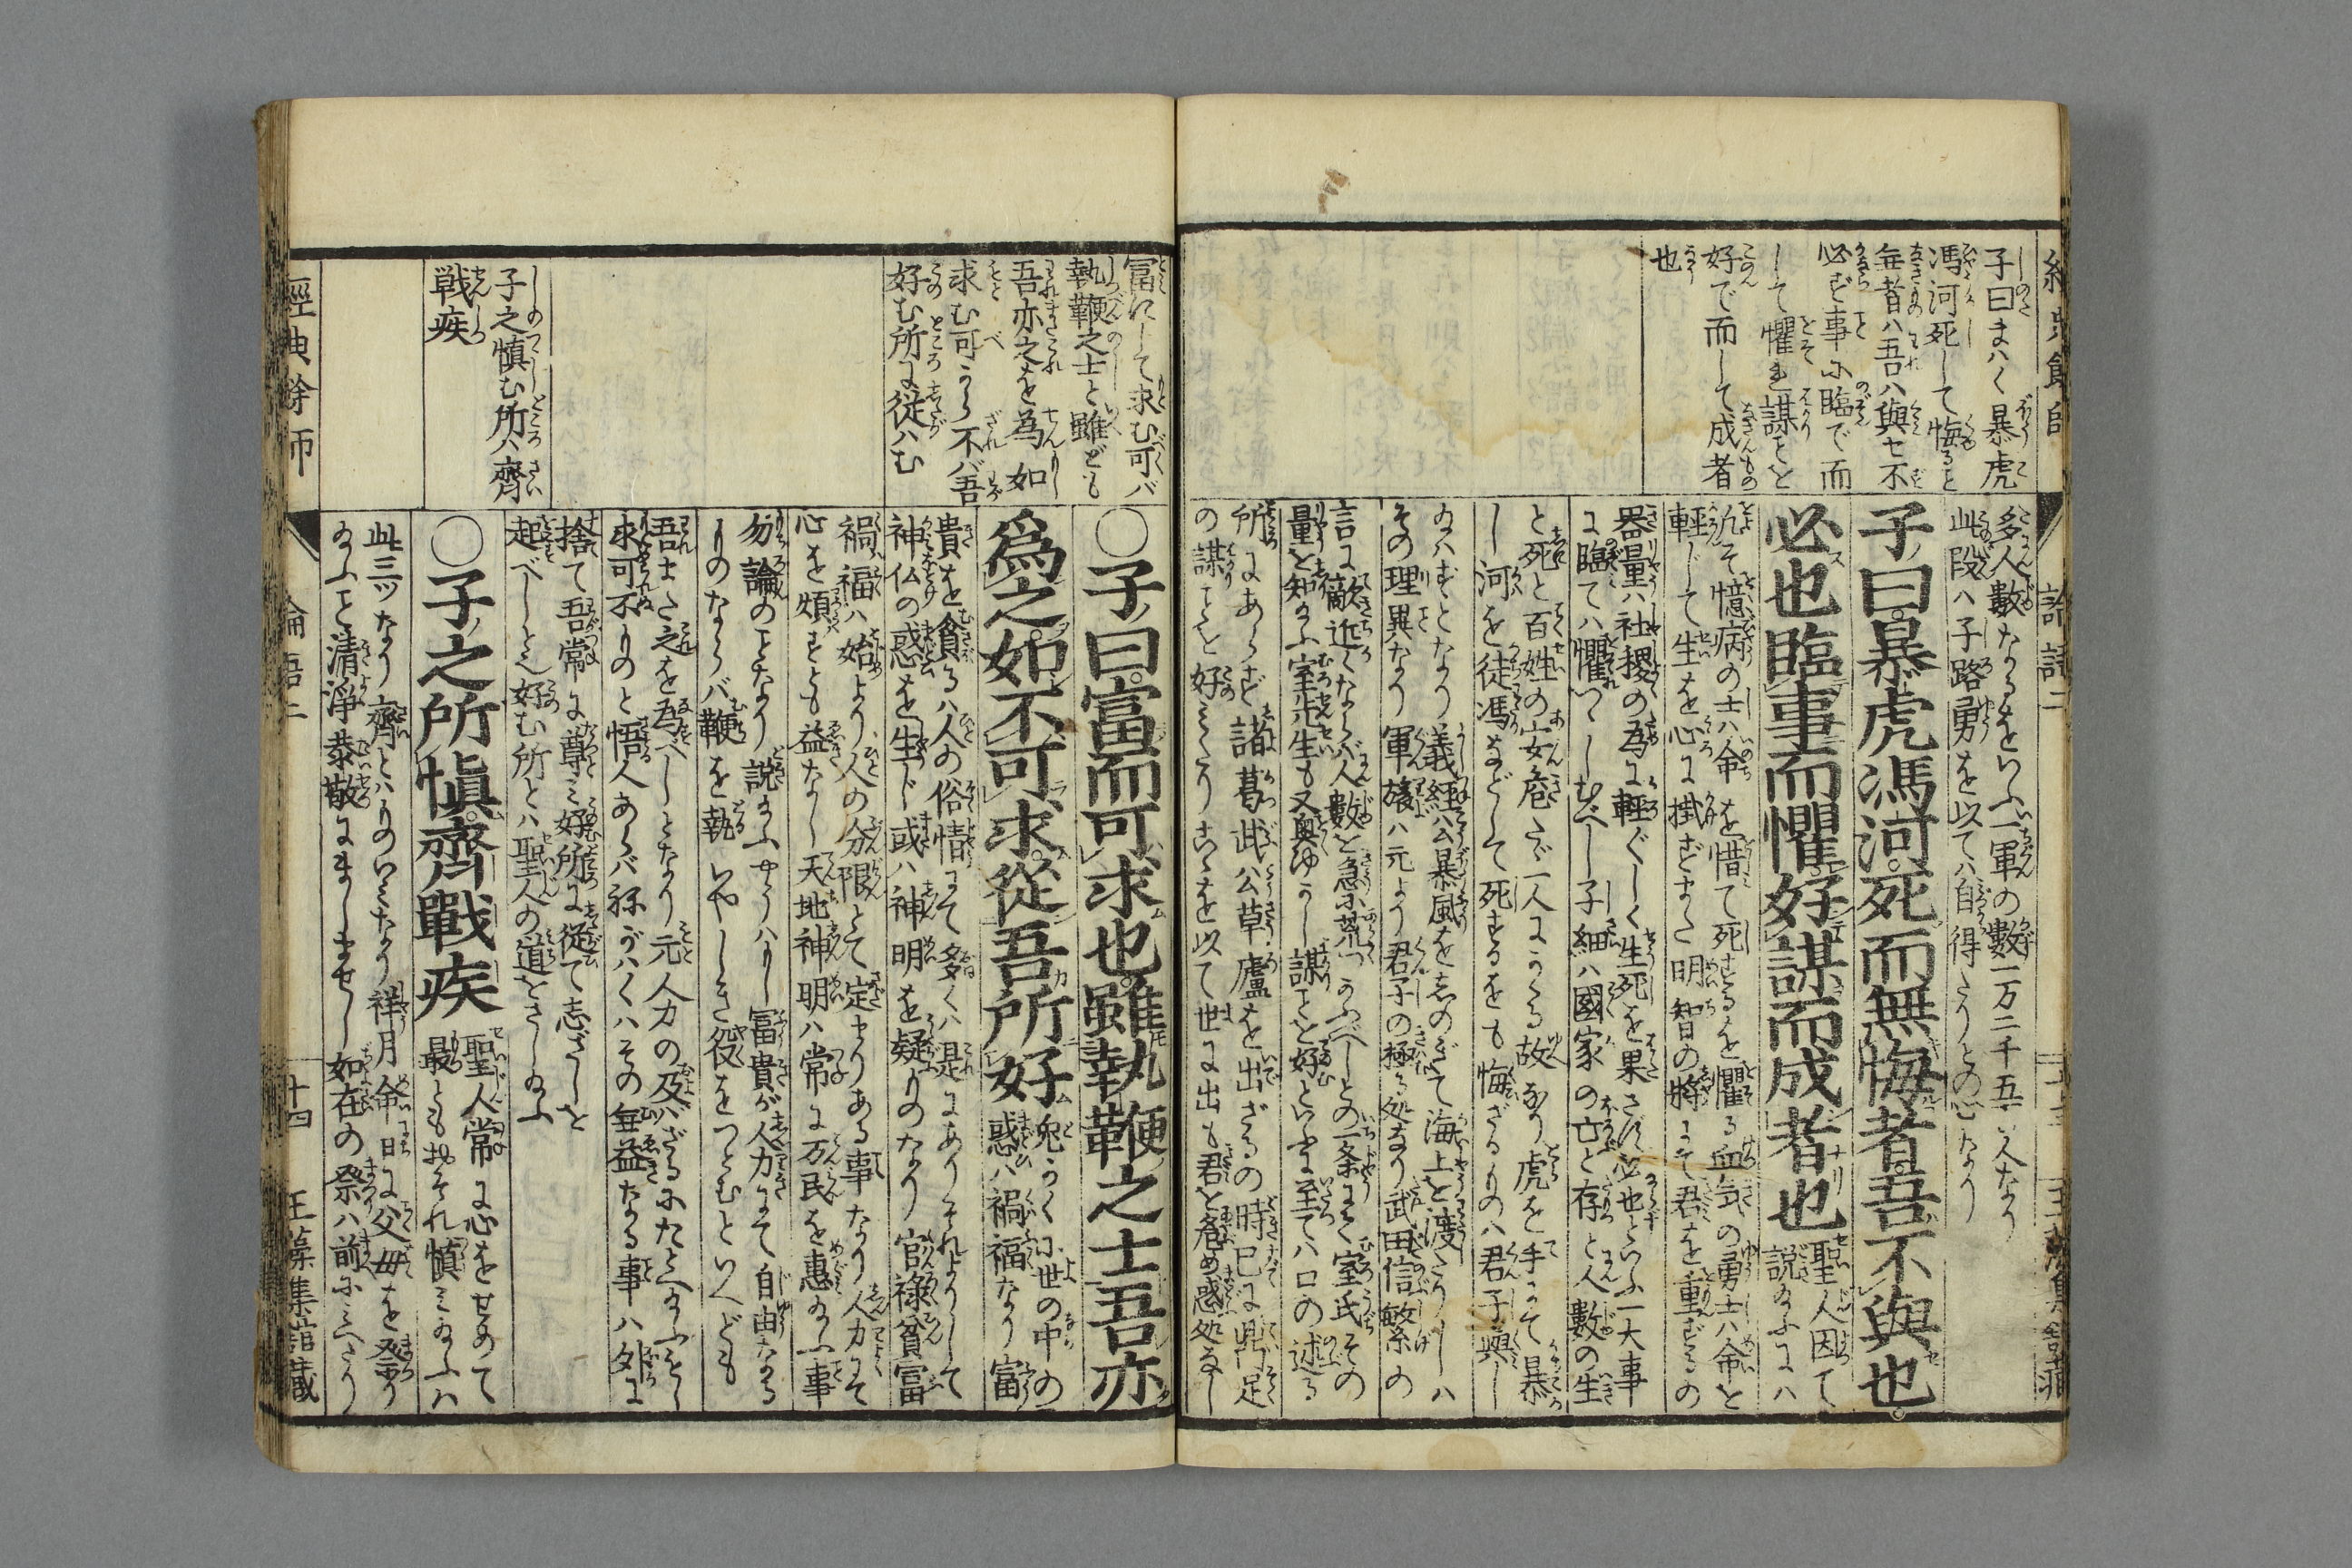 子曰まハく暴虎
馮河死して悔ること
無者ハ吾ハ與せ不
必ず事に臨で而
して懼れ謀ことを
好で而して成者
也
多人數なるをいふ一軍の數一万二千五百人なり
此段ハ子路勇を以てハ自得たりとの心なり
子曰暴虎馮河死而無悔者吾不與也
必也臨事而懼好謀而成者也
聖人因て
説給ふにハ
凡そ憶病の士ハ命を惜て死するを懼る血気の勇士ハ命を
軽じて生を心に掛ずまた明智の將にて君を重ずるの
器量ハ社稷の為に軽ぐしく生死を果さず必也といふ一大事
に臨てハ懼つゝしむべし子細ハ國家の亡と存と人數の生
と死と百姓の安危たゞ一人にかゝる故なり虎を手にて暴
し河を徒馮などして死するをも悔ざるものハ君子與し
給ハずとなり義經公暴風をしのぎて海上を渡たりしハ
その理異なり軍旅ハ元より君子の極る処なり武田信繁の
言に敵近くならバ人數を急に荒つかふべしとの一条にて室氏その
量を知給ふ室先生も又奥ゆかし謀ことを好といふに至てハ口の述る
所にあらず諸葛武公草廬を出ざるの時已に鼎足
の謀ことを好みたりこゝを以て世に出も君を
富にして求む可バ
執鞭之士と雖ども
吾亦之を為ん如
求む可から不バ吾
好む所に従ハむ
子之慎む所ハ齊
戦疾
〇子曰富而可求也雖執鞭之士吾亦
爲之如不可求從吾所好
兎かく此世の中の
惑ハ禍福なり富
貴を貪るハ人の俗情にて多くハ是にありそれよりして
神仏の惑を生じ或ハ神明を疑ものなり官祿貧富
禍福ハ始より人の分限とて定まりある事なり人力にて
心を煩すとも益なし天地神明ハ常に万民を惠給ふ事
勿論のことなり説給ふやうハもし富貴が人力にて自由なる
ものならバ鞭を執いやしき役をつとむといへども
吾また之を為べしとなり元人力の及バざるにたとへ給ふをし
求可不ものと悟人あらバねがハくハその無益なる事ハ外に
捨て吾常に尊み好所に従て志ざしを
起べしと也好む所とハ聖人の道をさし給ふ
〇子之所愼齊戰疾
聖人常に心をせめて
最ともおそれ慎み給ふハ
此三ツなり齊とハものいみなり祥月命日に父母を祭り
給ふこと清淨恭敬にましませし如在の祭ハ前にみへたり
經典餘師
論語二
十四
玉藻集舘藏